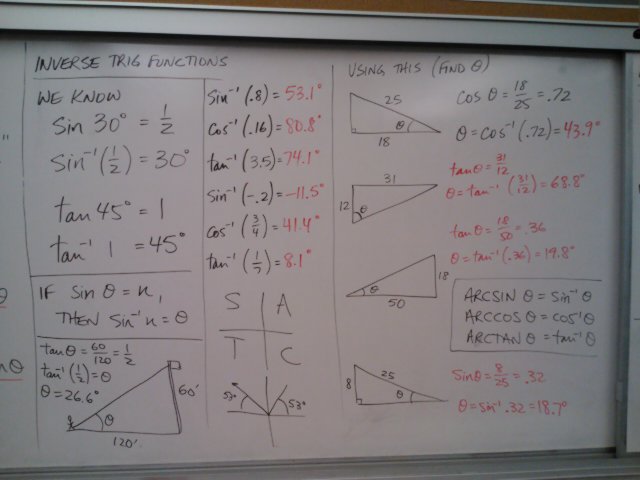 INVERSE TRIG FUNCTIONS
WE KNOW
Sin 30° = 1/2
Sin⁻¹(1/2) = 30°
tan 45° = 1
tan⁻¹ 1 = 45°
IF Sin θ = n,
THEN Sin⁻¹ n = θ
tan θ = 60/120 = 1/2
tan⁻¹(1/2) = θ
θ = 26.6°
60'
θ
120'
Sin⁻¹(.8) = 53.1°
cos⁻¹(.16) = 80.8°
tan⁻¹(3.5) = 74.1°
Sin⁻¹(-.2) = -11.5°
Cos⁻¹(3/4) = 41.4°
tan⁻¹(1/7) = 8.1°
S A
T C
53° 53°
USING THIS (FIND θ)
25
θ
18
Cos θ = 18/25 = .72
θ = Cos⁻¹(.72) = 43.9°
31
12 θ
tan θ = 31/12
θ = tan⁻¹(31/12) = 68.8°
18
θ
50
tan θ = 18/50 = .36
θ = tan⁻¹(.36) = 19.8°
ARCSIN θ = sin⁻¹ θ
ARCCOS θ = cos⁻¹ θ
ARCTAN θ = tan⁻¹ θ
25
8 θ
Sin θ = 8/25 = .32
θ = sin⁻¹ .32 = 18.7°